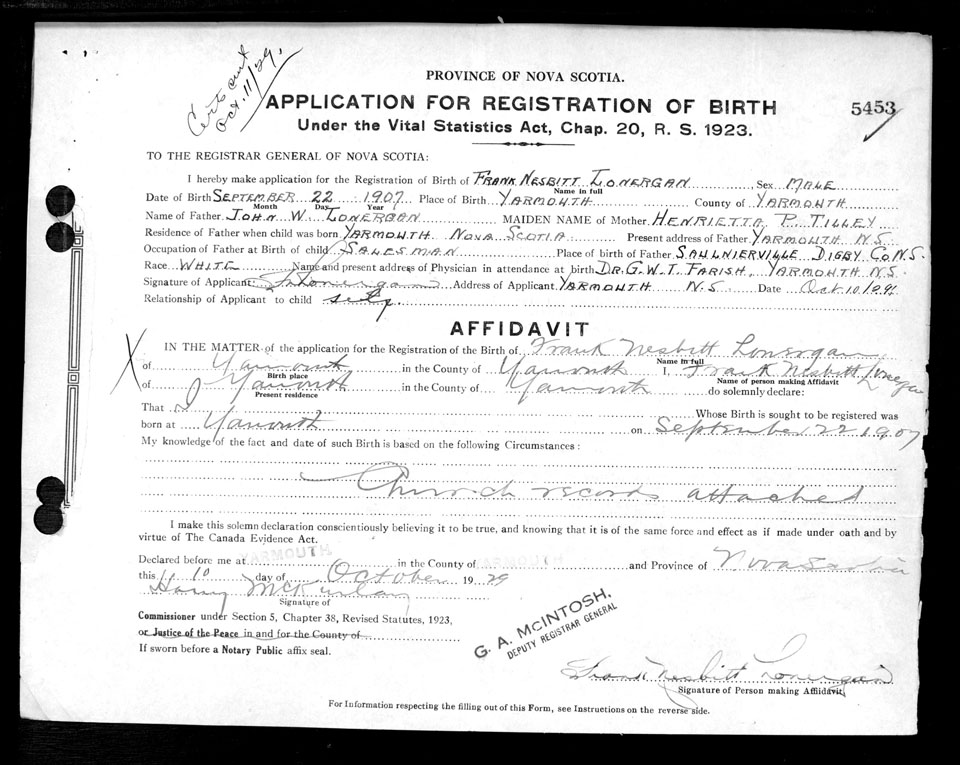 Certs sent
Oct. 11/29.
PROVINCE OF NOVA SCOTIA.
APPLICATION FOR REGISTRATION OF BIRTH
5453
Under the Vital Statistics Act, Chap. 20, R. S. 1923.
TO THE REGISTRAR GENERAL OF NOVA SCOTIA:
I hereby make application for the Registration of Birth of FRANK NESBITT LONERGAN Sex MALE
Name in full
Date of Birth SEPTEMBER 22 1907 Place of Birth YARMOUTH County of YARMOUTH
Month Day Year
Name of Father JOHN W. LONERGAN MAIDEN NAME of Mother HENRIETTA P. TILLEY
Residence of Father when child was born YARMOUTH NOVA SCOTIA Present address of Father YARMOUTH N.S.
Occupation of Father at Birth of child SALESMAN Place of birth of Father SAULNIERVILLE DIGBY CO. N.S.
Race WHITE Name and present address of Physician in attendance at birth DR. G. W. T. FARISH, YARMOUTH N.S.
Signature of Applicant: Lonergan Address of Applicant YARMOUTH N.S. Date Oct 10/29
Relationship of Applicant to child self.
AFFIDAVIT
IN THE MATTER of the application for the Registration of the Birth of Frank Nesbitt Lonergan
Name in full
X of Yarmouth in the County of Yarmouth I, Frank Nesbitt Lonergan
Birth place Name of person making Affidavit
of Yarmouth in the County of Yarmouth do solemnly declare:
Present residence
That I Whose Birth is sought to be registered was
born at Yarmouth on September 22 1907
My knowledge of the fact and date of such Birth is based on the following Circumstances:
Church records attached
I make this solemn declaration conscientiously believing it to be true, and knowing that it is of the same force and effect as if made under oath and by
virtue of The Canada Evidence Act.
Declared before me at YARMOUTH in the County of YARMOUTH and Province of Nova Scotia
this 10 day of October 1929
Harry
Signature of
Commissioner under Section 5, Chapter 38, Revised Statutes, 1923,
or Justice of the Peace in and for the County of
If sworn before a Notary Public affix seal.
G. A. McINTOSH,
DEPUTY REGISTRAR GENERAL
Frank Nesbitt Lonergan
Signature of Person making Affidavit,
For Information respecting the filling out of this Form, see Instructions on the reverse side.